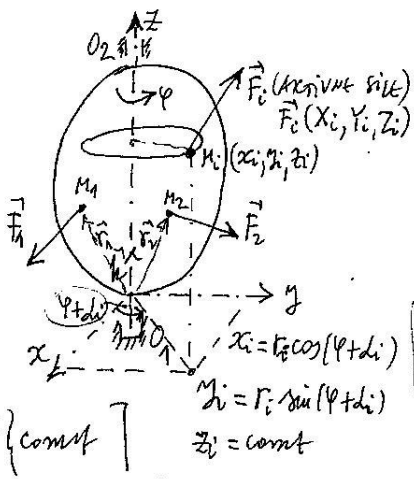 z
O₂
φ
F⃗i (AKTIVNE SILE)
F⃗i (Xi, Yi, Zi)
Mi (xi, yi, zi)
M₁
M₂
F⃗₁
r⃗₁
r⃗₂
F⃗₂
φ+αi
y
O₁
x
xi = ri cos(φ+αi)
yi = ri sin(φ+αi)
zi = const
{const}